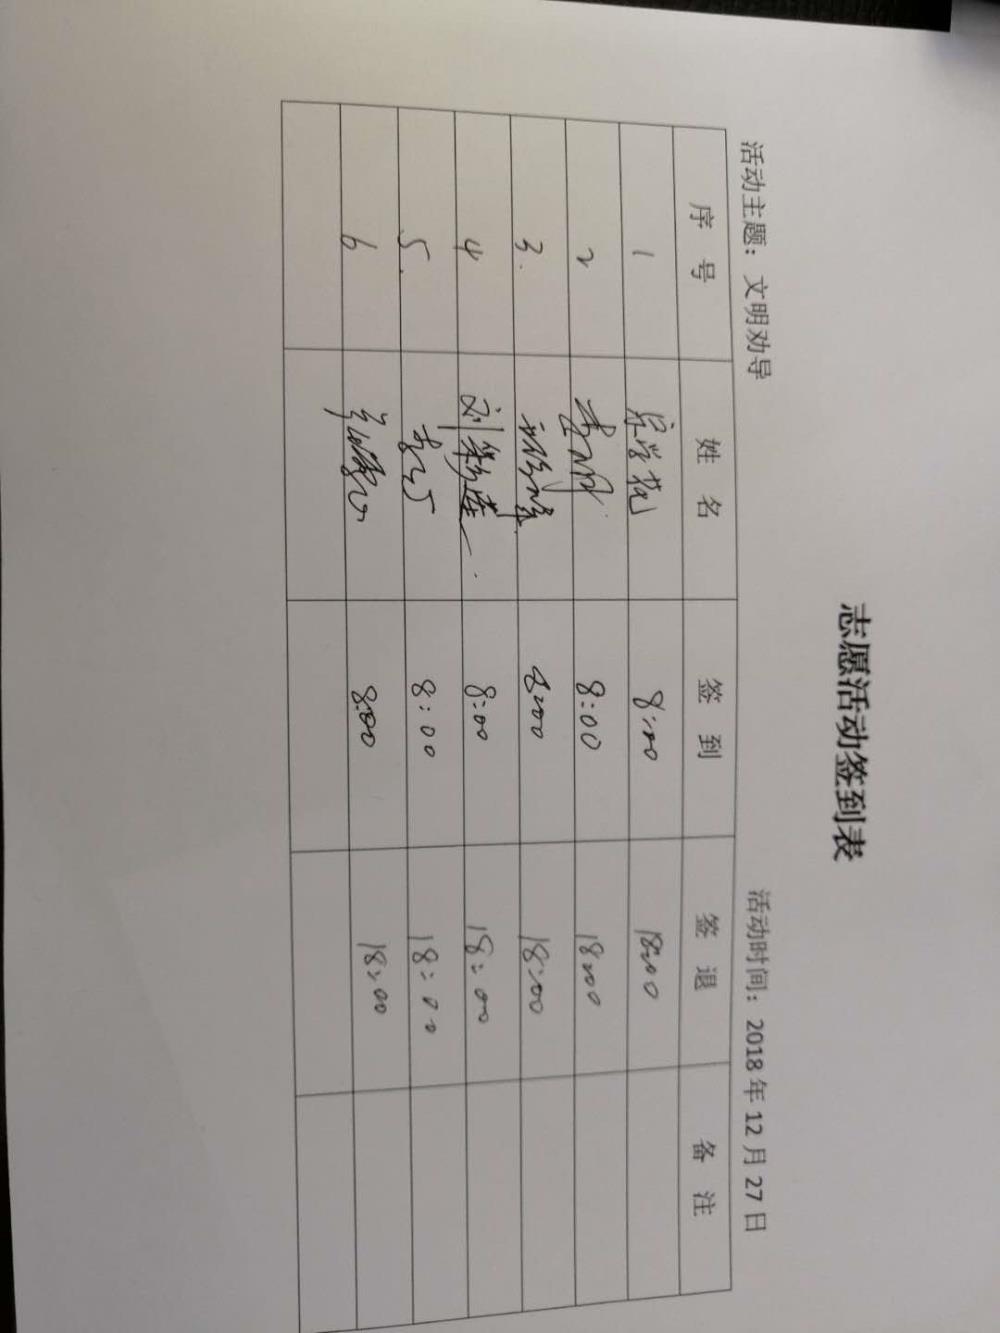 志愿活动签到表
活动主题：文明劝导 活动时间：2018年12月27日
序号 姓名 签到 签退 备注
1 8:00 18:00
2 8:00 18:00
3. 8:00 18:00
4 刘 8:00 18:00
5. 8:00 18:00
6 8:00 18:00